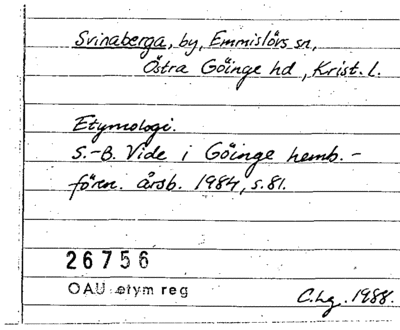 Svinaberga, by, Emmislövs sn,
Östra Göinge hd, Krist. l.
Etymologi.
S.-B. Vide i Göinge hemb.-
fören. årsb. 1984, s. 81.
26756
OAU etym reg
C.Hg. 1988.